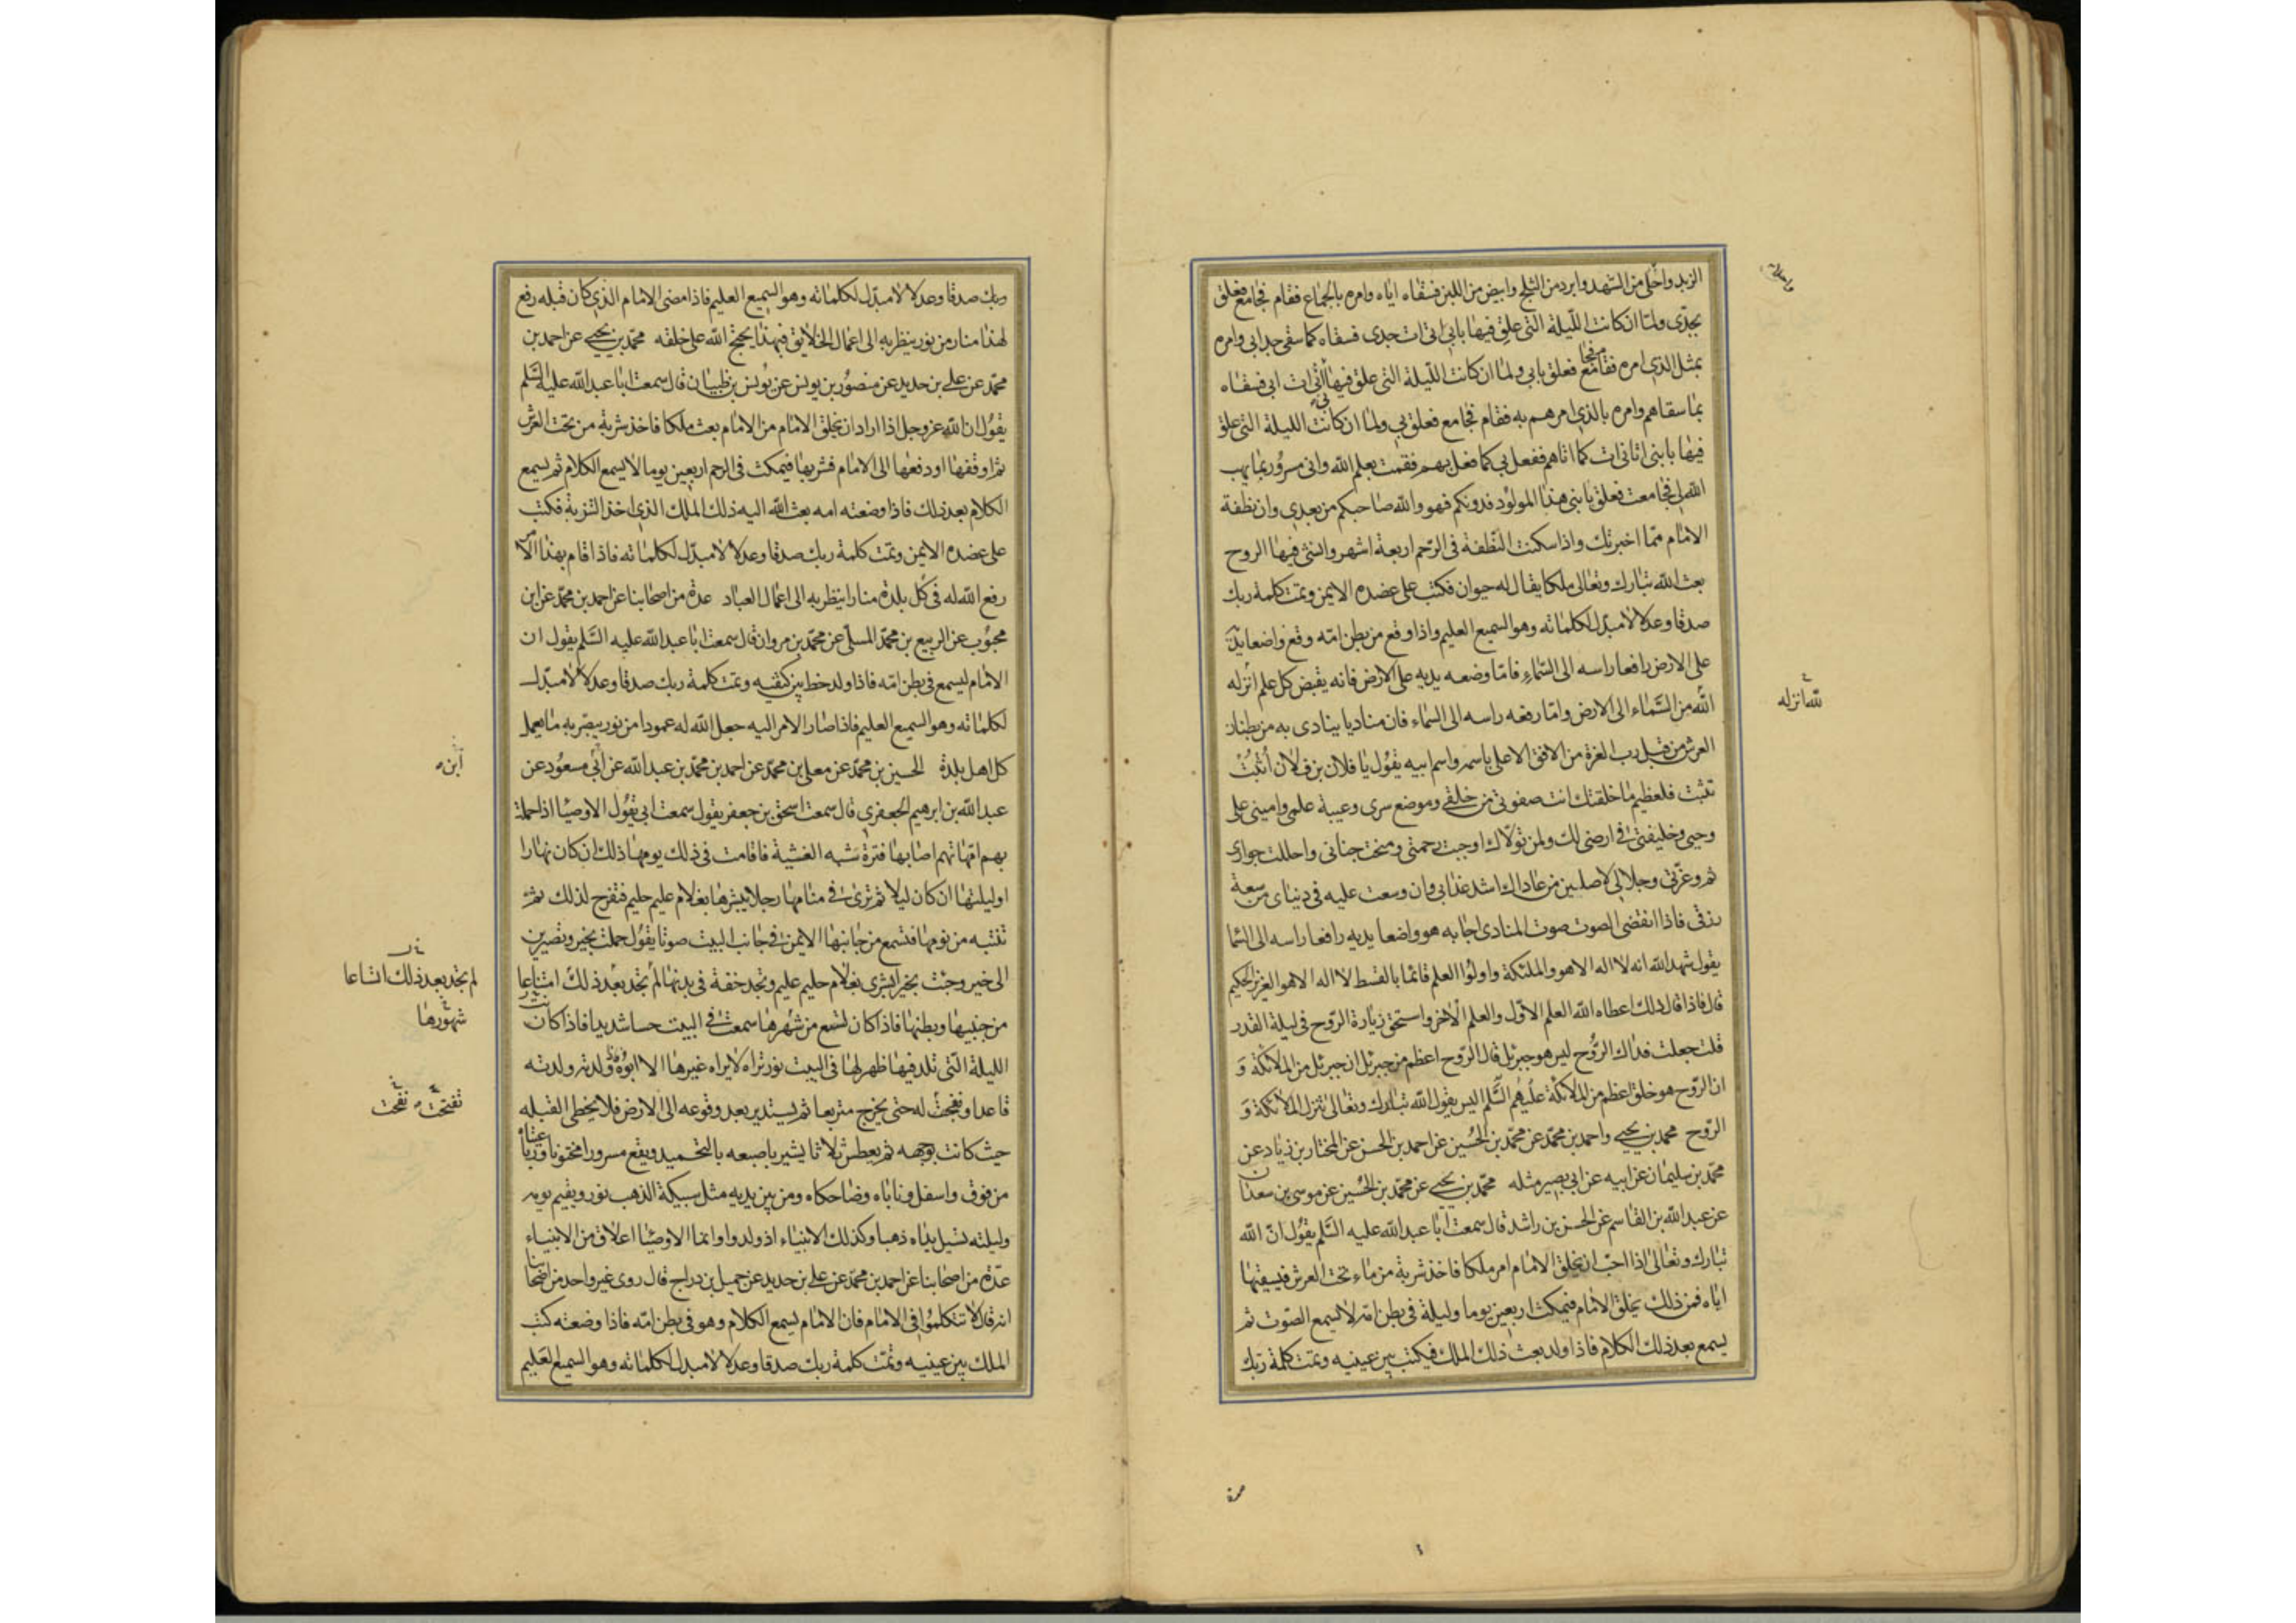 الزبد واحلى من الشهد وابرد من الثلج وابيض من اللبن فسقاه اياه وامره بالجماع فقام فجامع فعلق
بجدى ولما ان كانت الليلة التى علق فيها بابى اتى ات جدى فسقاه كما سقى جد ابى وامره
بمثل الذى امره فقام فجامع فعلق بابى ولما ان كانت الليلة التى علق فيها بى اتى ات ابى فسقاه
بما سقاهم وامره بالذى امرهم به فقام فجامع فعلق بى ولما ان كانت الليلة التى علق
فيها بابنى اتانى ات كما اتاهم ففعل بى كما فعل بهم فقمت بعلم الله وانى مسرور بما يهب
الله لى فجامعت فعلق بابنى هذا المولود فدونكم فهو والله صاحبكم من بعدى وان نطفة
الامام مما اخبرتك واذا سكنت النطفة فى الرحم اربعة اشهر وانشئ فيها الروح
بعث الله تبارك وتعالى ملكا يقال له حيوان فكتب على عضده الايمن وتمت كلمة ربك
صدقا وعدلا لا مبدل لكلماته وهو السميع العليم واذا وقع من بطن امه وقع واضعا يديه
على الارض رافعا راسه الى السماء فاما وضعه يديه على الارض فانه يقبض كل علم انزله
لله انزله
الله من السماء الى الارض واما رفعه راسه الى السماء فان مناديا ينادى به من بطنان
العرش من قبل رب العزة من الافق الاعلى باسمه واسم ابيه يقول يا فلان بن فلان اثبت
تثبت فلعظيم ما خلقتك انت صفوتى من خلقى وموضع سرى وعيبة علمى وامينى على
وحيى وخليفتى فى ارضى لك ولمن تولاك اوجبت رحمتى ومنحت جنانى واحللت جوارى
ثم وعزتى وجلالى لاصلين من عاداك اشد عذابى وان وسعت عليه فى دنياى من سعة
رزقى فاذا انقضى الصوت صوت المنادى اجابه هو واضعا يديه رافعا راسه الى السما
يقول شهد الله انه لا اله الا هو والملئكة واولوا العلم قائما بالقسط لا اله الا هو العزيز الحكيم
قال فاذا قال ذلك اعطاه الله العلم الاول والعلم الاخر واستحق زيارة الروح فى ليلة القدر
قلت جعلت فداك الروح ليس هو جبرئل قال الروح اعظم من جبرئل ان جبرئل من الملائكة و
ان الروح هو خلق اعظم من الملائكة عليهم السلم اليس يقول الله تبارك وتعالى تنزل الملائكة و
الروح محمد بن يحيى واحمد بن محمد عن محمد بن الحسين عن احمد بن الحسن عن المختار بن زياد عن
محمد بن سليمان عن ابيه عن ابى بصير مثله محمد بن يحيى عن محمد بن الحسين عن موسى بن سعدان
عن عبد الله بن القاسم عن الحسن بن راشد قال سمعت ابا عبد الله عليه السلم يقول ان الله
تبارك وتعالى اذا احب ان يخلق الامام امر ملكا فاخذ شربة من ماء تحت العرش فيسقيها
اياه فمن ذلك يخلق الامام فيمكث اربعين يوما وليلة فى بطن امه لا يسمع الصوت ثم
يسمع بعد ذلك الكلام فاذا ولد بعث ذلك الملك فيكتب بين عينيه وتمت كلمة ربك
ربك صدقا وعدلا لا مبدل لكلماته وهو السميع العليم فاذا مضى الامام الذى كان قبله رفع
لهذا منار من نور ينظر به الى اعمال الخلائق فبهذا يحتج الله على خلقه محمد بن يحيى عن احمد بن
محمد عن على بن حديد عن منصور بن يونس عن يونس بن ظبيان قال سمعت ابا عبد الله عليه السلم
يقول ان الله عز وجل اذا اراد ان يخلق الامام من الامام بعث ملكا فاخذ شربة من تحت العرش
ثم اوقفها او دفعها الى الامام فشربها فيمكث فى الرحم اربعين يوما لا يسمع الكلام ثم يسمع
الكلام بعد ذلك فاذا وضعته امه بعث الله اليه ذلك الملك الذى اخذ الشربة فكتب
على عضده الايمن وتمت كلمة ربك صدقا وعدلا لا مبدل لكلماته فاذا قام بهذا الامر
رفع الله له فى كل بلدة منارا ينظر به الى اعمال العباد عدة من اصحابنا عن احمد بن محمد عن ابن
محبوب عن الربيع بن محمد المسلى عن محمد بن مروان قال سمعت ابا عبد الله عليه السلم يقول ان
الامام ليسمع فى بطن امه فاذا ولد خط بين كتفيه وتمت كلمة ربك صدقا وعدلا لا مبدل
لكلماته وهو السميع العليم فاذا صار الامر اليه جعل الله له عمودا من نور يبصر به ما يعمل
كل اهل بلدة الحسين بن محمد عن معلى بن محمد عن احمد بن محمد بن عبد الله عن ابى مسعود عن
ابن
عبد الله بن ابرهيم الجعفرى قال سمعت اسحق بن جعفر يقول سمعت ابى يقول الاوصيا اذا حملت
بهم امهاتهم اصابها فترة شبه الغشية فاقامت فى ذلك يومها ذلك ان كان نهارا
او ليلتها ان كان ليلا ثم ترى فى منامها رجلا يبشرها بغلام عليم حليم فتفرح لذلك ثم
تنتبه من نومها فتسمع من جانبها الايمن فى جانب البيت صوتا يقول حملت بخير وتصيرين
الى خير وجئت بخير ابشرى بغلام حليم عليم وتجد خفة فى بدنها لم تجد بعد ذلك امتناعا
لم تجد بعد ذلك اتساعا
من جنبيها وبطنها فاذا كان لتسع من شهرها سمعت فى البيت حسا شديدا فاذا كانت
شهورها
الليلة التى تلد فيها ظهر لها فى البيت نور تراه لا يراه غيرها الا ابوه فاذا ولدته ولدته
قاعدا وتفجت له حتى يخرج متربعا ثم يستدير بعد وقوعه الى الارض فلا يخطى القبله
تفتحت نفجت
حيث كانت بوجهه ثم يعطس ثلاثا يشير باصبعه بالتحميد ويقع مسرورا مختونا ورباعيتاه
من فوق واسفل وناباه وضاحكاه ومن بين يديه مثل سبيكة الذهب نور ويقيم يومه
وليلته تسيل يداه ذهبا وكذلك الانبياء اذ ولدوا وانما الاوصيا اعلاق من الانبياء
عدة من اصحابنا عن احمد بن محمد عن على بن حديد عن جميل بن دراج قال روى غير واحد من اصحابنا
انه قال لا تتكلموا فى الامام فان الامام يسمع الكلام وهو فى بطن امه فاذا وضعته كتب
الملك بين عينيه وتمت كلمة ربك صدقا وعدلا لا مبدل لكلماته وهو السميع العليم